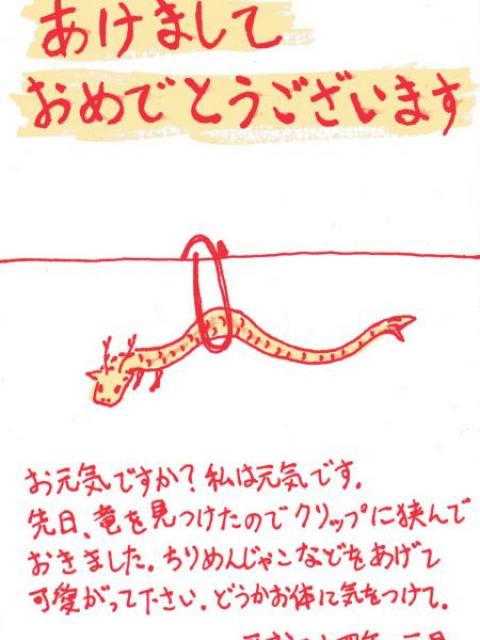 あけまして
おめでとうございます
お元気ですか?私は元気です。
先日、竜を見つけたのでクリップに挟んで
おきました。ちりめんじゃこなどをあげて
可愛がって下さい。どうかお体に気をつけて。